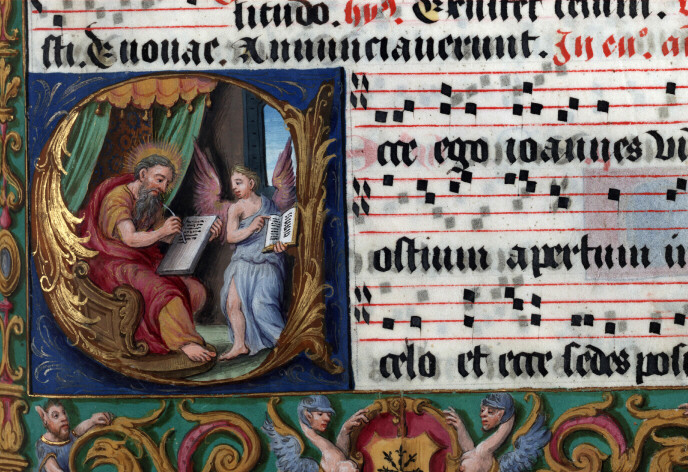 litudo. Exultet celum.
sti. Euouae. Annunciauerunt. In eu°.
Ecce ego ioannes vi
ostium apertum i
celo et ecce sedes pos